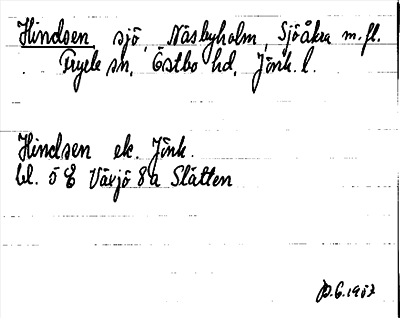 Hindsen, sjö, Näsbyholm, Sjöåkra m.fl.
Tryele sn, Östbo hd, Jönk. l.
Hindsen ek. Jönk.
bl. 5 E Växjö 8a Slätten
P.G. 1957